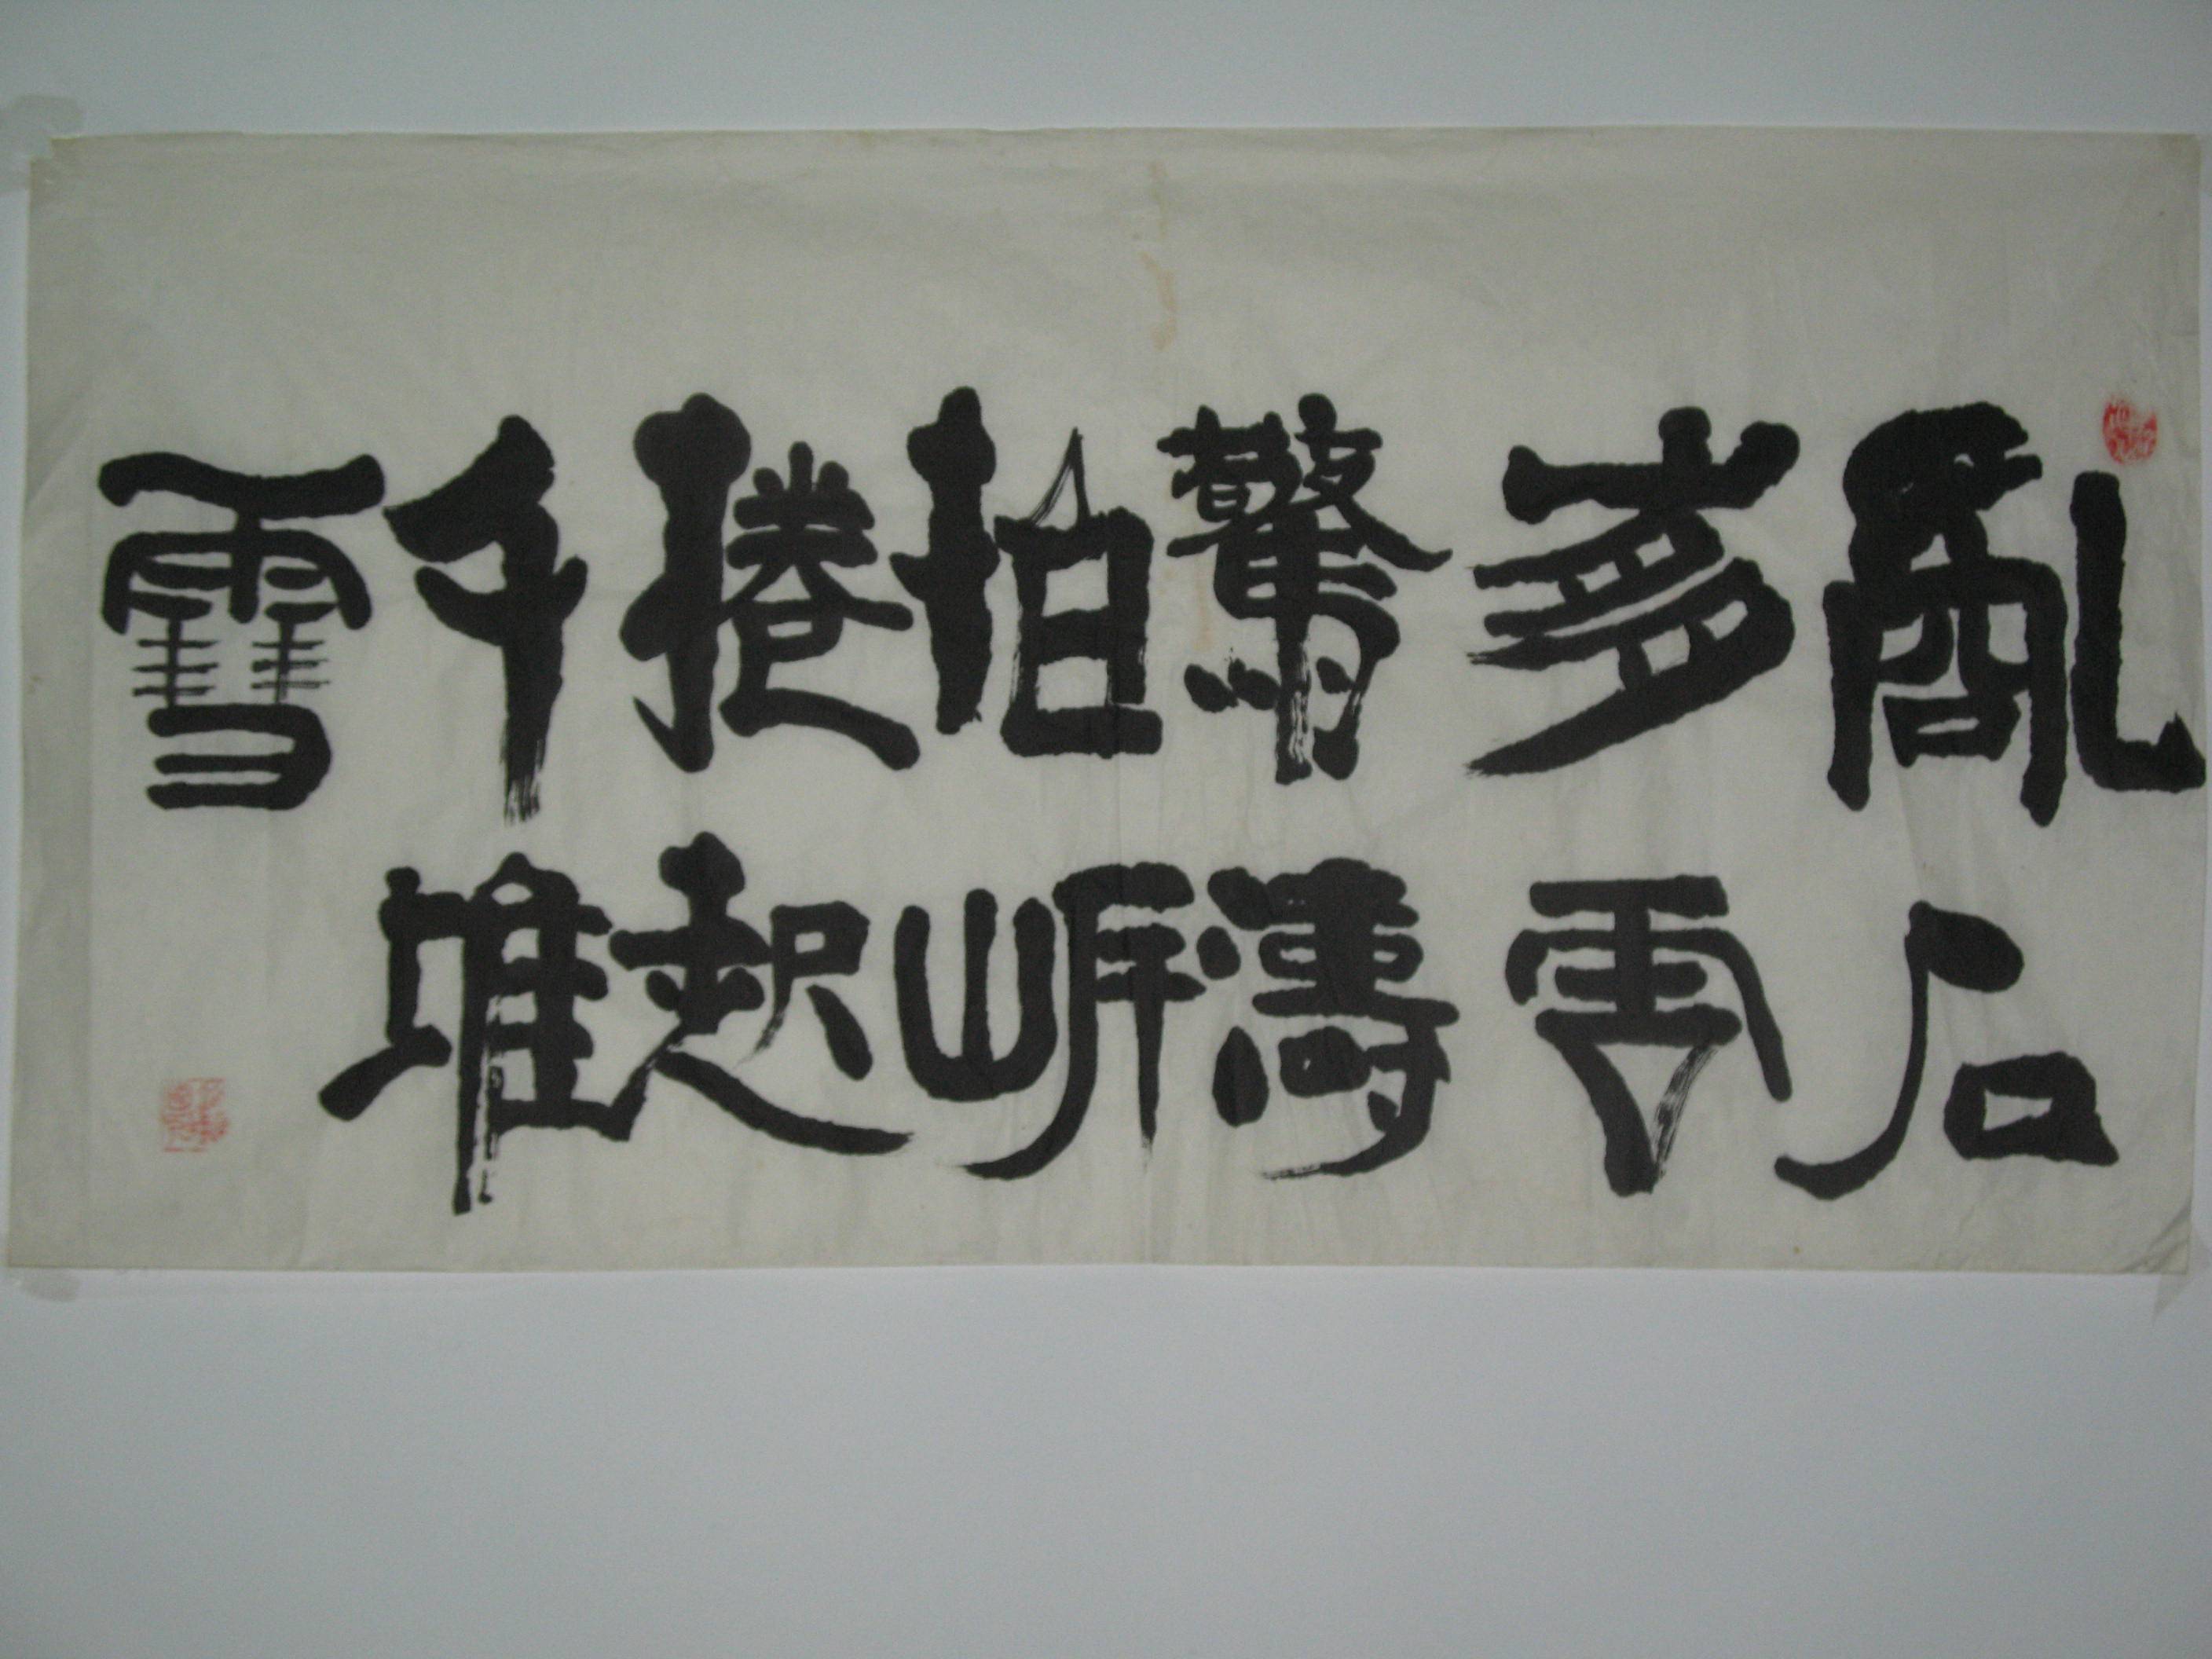 亂石
崩雲
驚濤
拍岸
捲起
千堆
雪